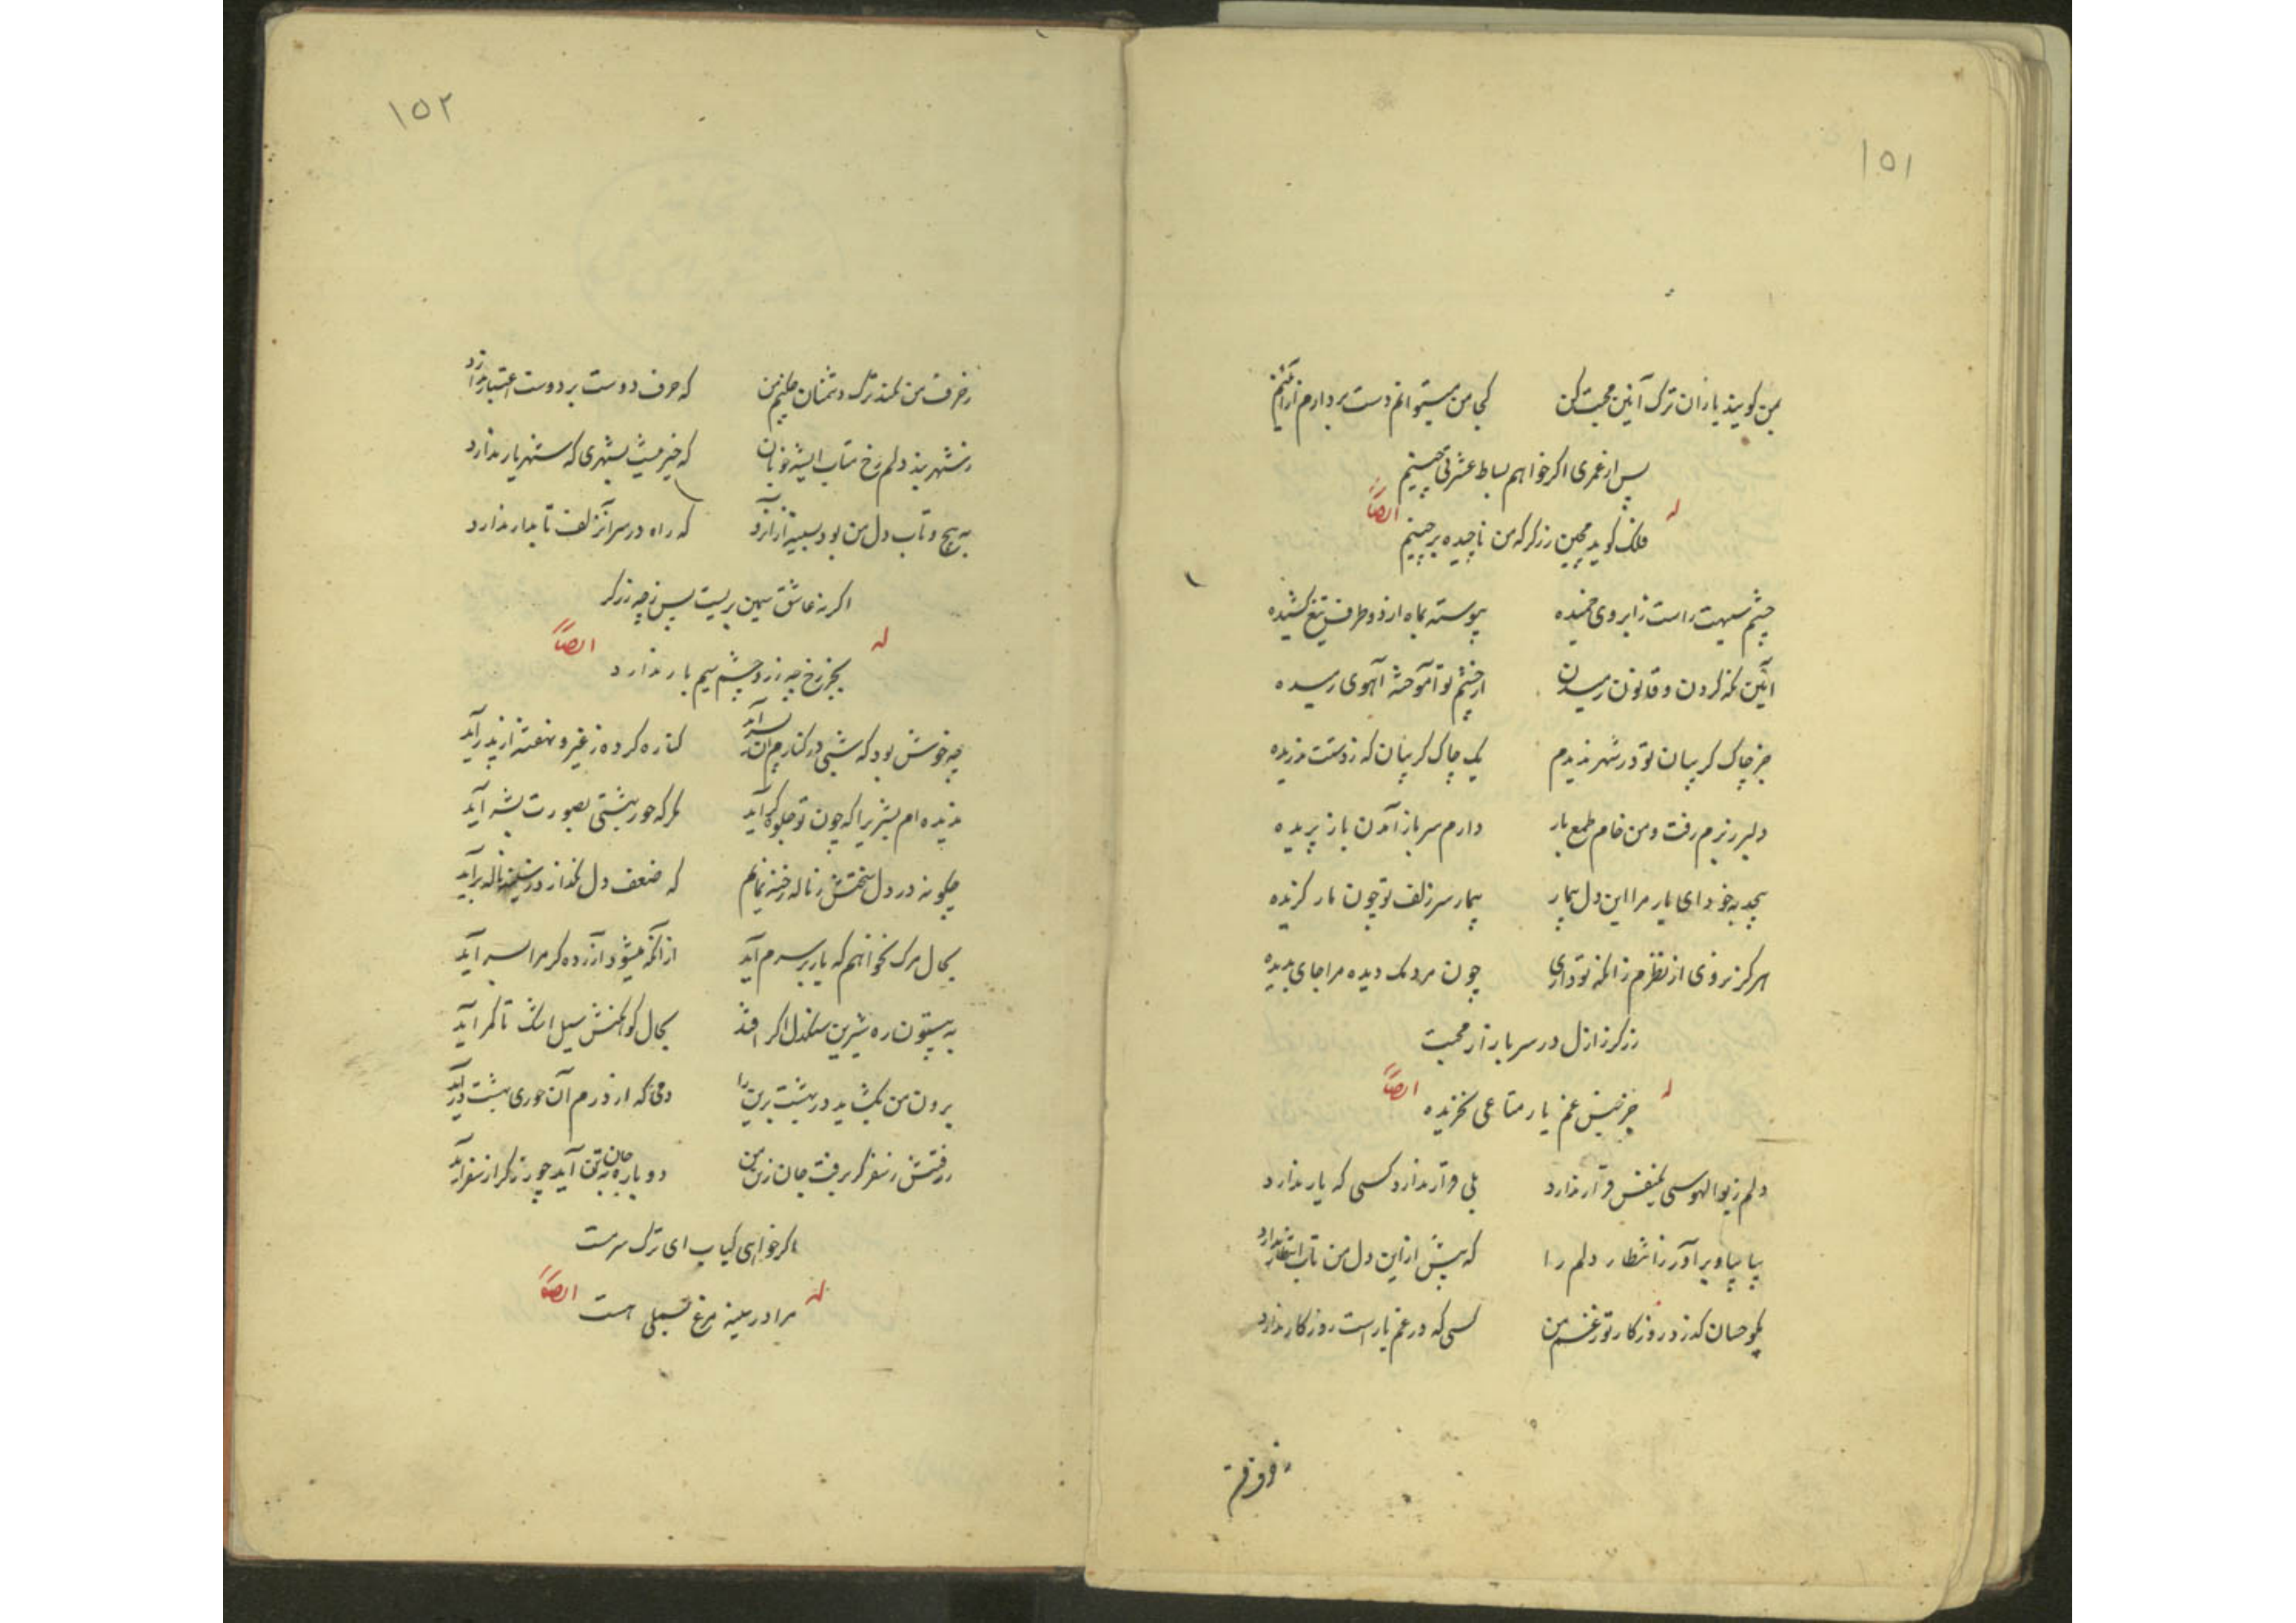 ۱۵۱
بمن کویند یاران ترک آئین محبت کن کجا من میتوانم دست بردارم از آئینم
پس از عمری اکر خواهم بساط عشرتی چینم
له ایضاً
فلک کوید مچین زرکر که من ناچیده برچینم
چشم سیهت راست ز ابروی خمیده پیوسته بماه از دو طرف تیغ کشیده
آئین نکه کردن و قانون رمیدن از چشم تو آموخته آهوی رمیده
جز چاک کریبان تو در شهر ندیدم یک چاک کریبان که ز دستت ندریده
دلبر ز برم رفت و من خام طمع باز دارم سر باز آمدن باز پریده
پیچد بخود ای یار مرا این دل بیمار بیمار سر زلف تو چون مار کزیده
هرکز نروی از نظرم زانکه تو داری چون مردمک دیده مرا جای بدیده
زرکر ز ازل در سر بازار محبت
له ایضاً
جز جنس غم یار متاعی نخریده
دلم ز بوالهوسی یکنفس قرار ندارد بلی قرار ندارد کسی که یار ندارد
بیا بیا و برآور ز انتظار دلم را که بیش از این دل من تاب انتظار ندارد
مکو حسان کذرد روزکار تو ز غم من کسی که در غم یار است روزکار ندارد
ز حرف
۱۵۲
ز حرف من نکند ترک دشمنان چکنم من که حرف دوست بر دوست اعتبار ندارد
ز شهر بند دلم رخ متاب ای شه خوبان که خیر نیست بشهری که شهریار ندارد
به پیچ و تاب دل من بود همیشه از آنرو که راه در سر آنزلف تابدار ندارد
اکر نه عاشق سیمین بریست پس ز چه زرکر
له ایضاً
بجز رخ چه زر و چشم سیم بار ندارد
چه خوش بود که شبی در کنارم آن پسر آید کناره کرده ز غیر و نهفته از پدر آید
ندیده ام بشریرا که چون تو جلوه کر آید مکر که حور بهشتی بصورت بشر آید
چکونه در دل سختش ز ناله رخنه نمایم که ضعف دل نکذارد ز سینه ناله برآید
بحال مرک نخواهم که یار بر سرم آید از آنکه میشود آزرده کر مرا بسر آید
به بیستون ره شیرین سنکدل اکر افتد بحال کوهکنش سیل اشک تا کمر آید
برون من بکشاید در بهشت برین را دمی که از درم آن حوری بهشت درآید
ز رفتنش ز سفر کر برفت جان ز تن من دوباره جان به تن آید چو زرکر از سفر آید
اکر خواهی کباب ای ترک سرمست
له ایضاً
مرا در سینه مرغ بسملی هست